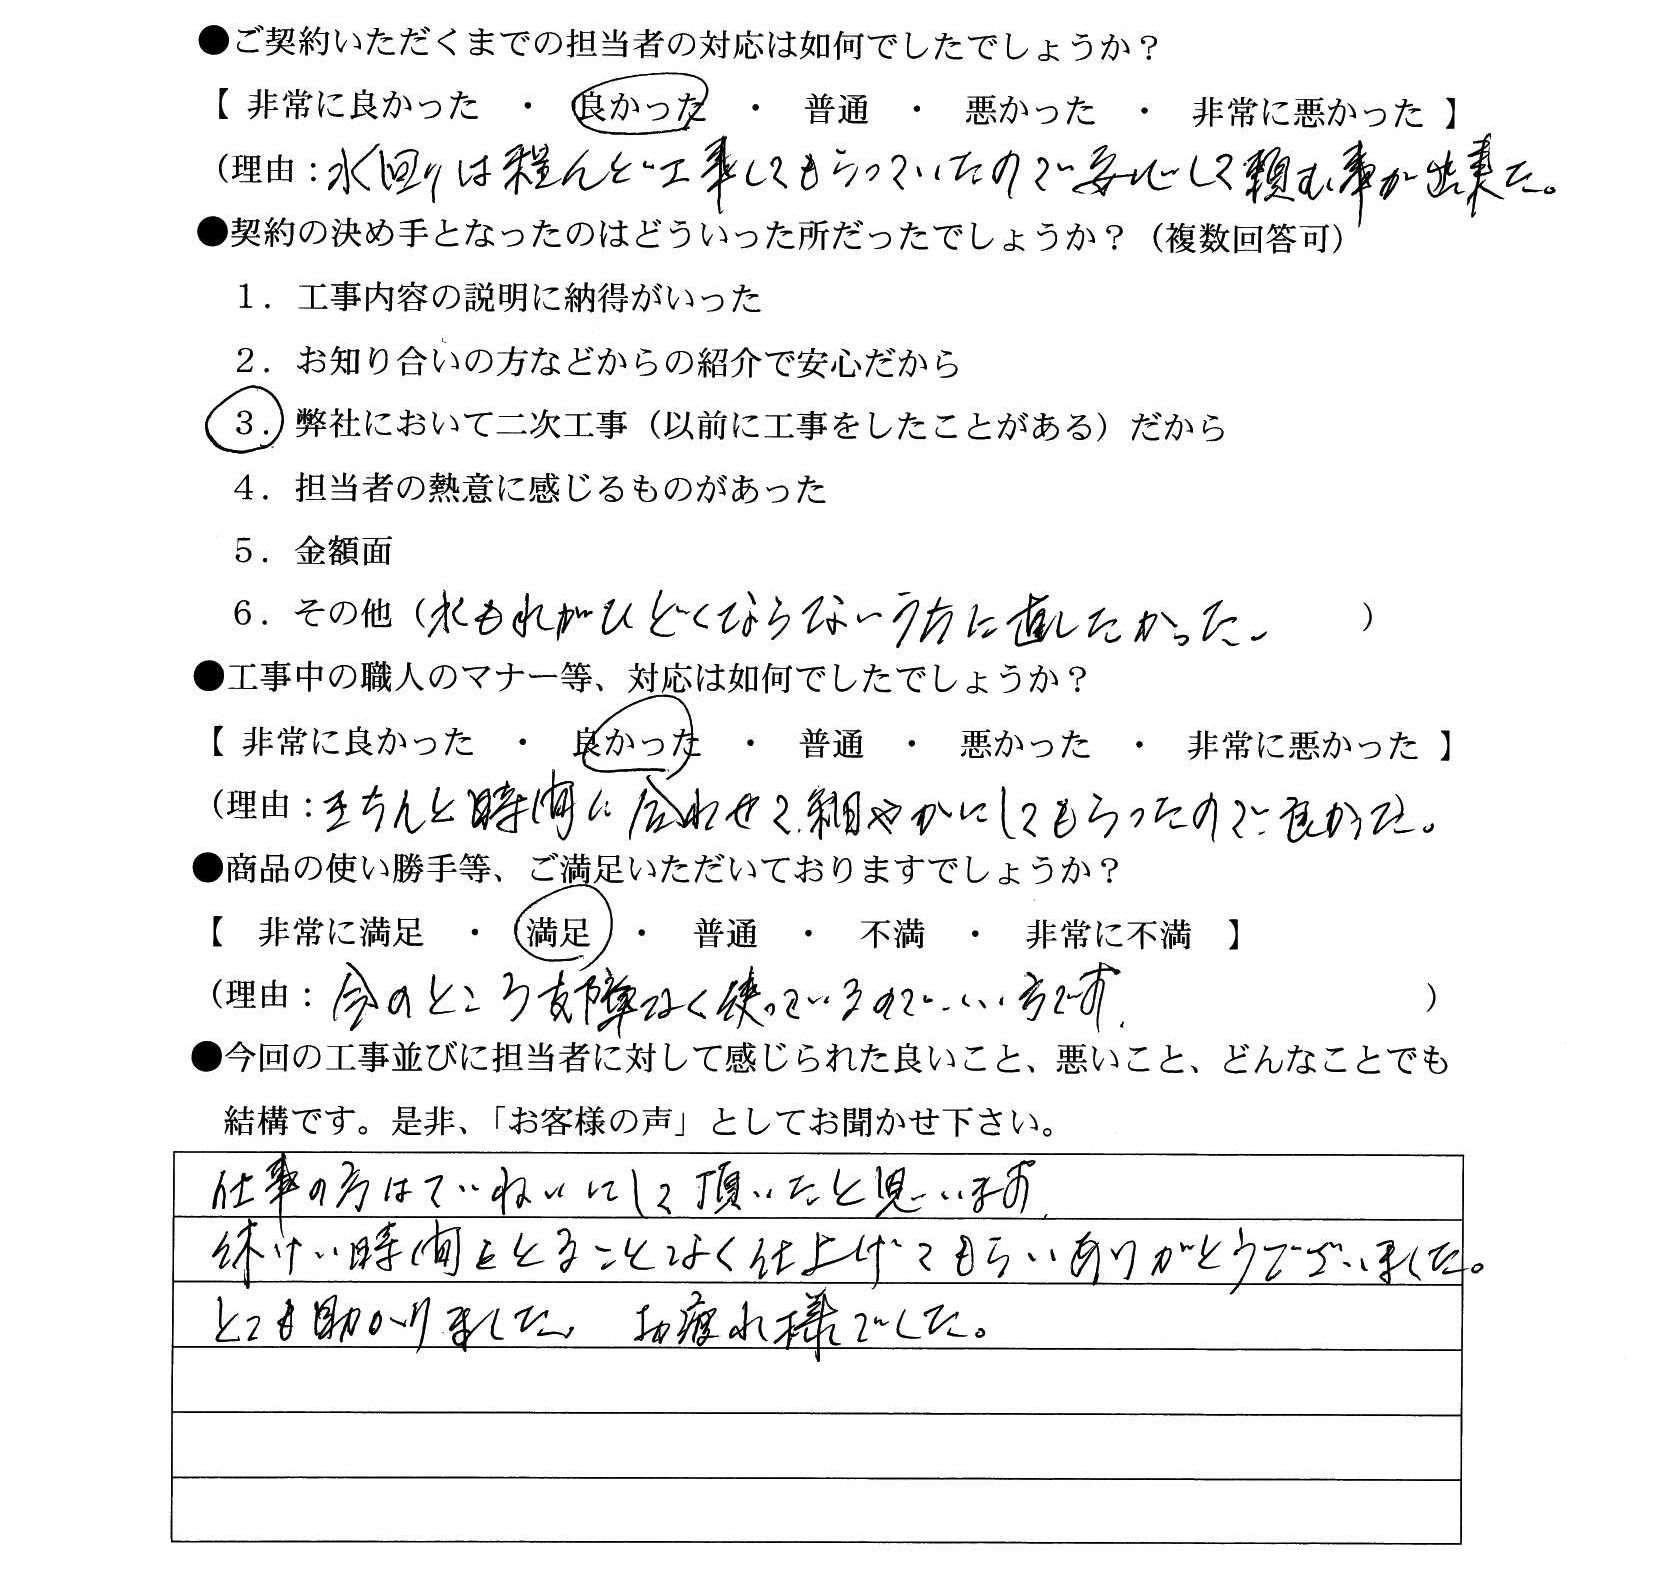 ●ご契約いただくまでの担当者の対応は如何でしたでしょうか？
【 非常に良かった ・ 良かった ・ 普通 ・ 悪かった ・ 非常に悪かった 】
（理由：水回りは程んど工事してもらっていたので安心して頼む事が出来た。
●契約の決め手となったのはどういった所だったでしょうか？（複数回答可）
１．工事内容の説明に納得がいった
２．お知り合いの方などからの紹介で安心だから
３．弊社において二次工事（以前に工事をしたことがある）だから
４．担当者の熱意に感じるものがあった
５．金額面
６．その他（水もれがひどくならないうちに直したかった。）
●工事中の職人のマナー等、対応は如何でしたでしょうか？
【 非常に良かった ・ 良かった ・ 普通 ・ 悪かった ・ 非常に悪かった 】
（理由：きちんと時間に合わせて、細やかにしてもらったので良かった。
●商品の使い勝手等、ご満足いただいておりますでしょうか？
【 非常に満足 ・ 満足 ・ 普通 ・ 不満 ・ 非常に不満 】
（理由：今のところ支障なく使っているので、いい方です。）
●今回の工事並びに担当者に対して感じられた良いこと、悪いこと、どんなことでも
結構です。是非、「お客様の声」としてお聞かせ下さい。
仕事の方はていねいにして頂いたと思います。
休けい時間をとることなく仕上げてもらいありがとうございました。
とても助かりました。 お疲れ様でした。